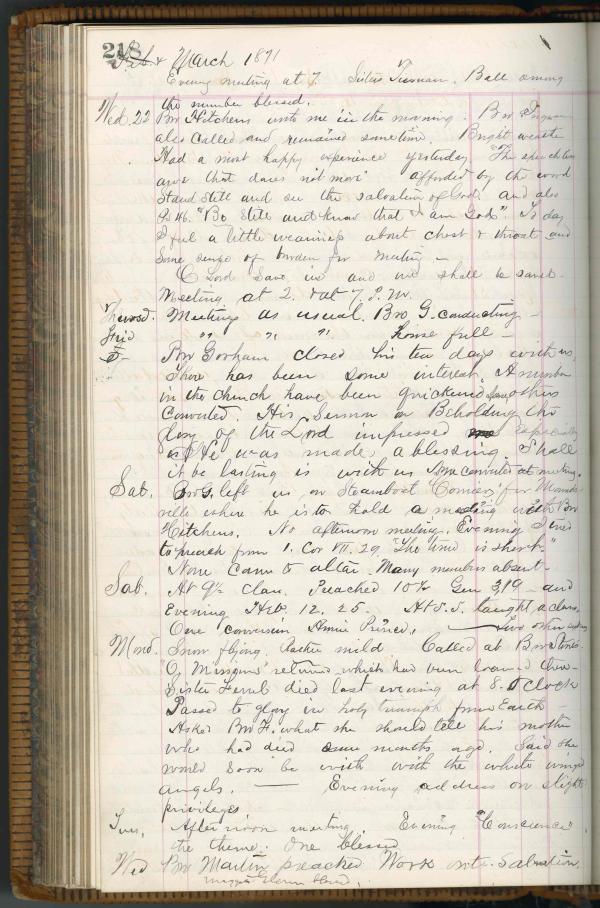 218
Feb. & March 1871
Evening meeting at 7. Sisters Tiernan. Ball among
the number blessed.
Wed. 22 Bro Hitchens with me in the morning. Bro
also called and remained sometime. Bright weather
Had a most happy experience yesterday. "The speechless
awe that dares not move" afforded by the word
Stand Still and see the salvation of God. and also
Ps 46. "Be Still and know that I am God". To day
I feel a little weariness about chest & throat and
some sense of burden for meeting –
O Lord Save us and we shall be saved –
Meeting at 2. & at 7. P.M.
Thursd. Meetings as usual. Bro. G. conducting –
Frid " " " house full –
Bro Gorham closed his ten days with us,
There has been some interest. A number
in the church have been quickened some others
Converted. His Sermon on Beholding the
glory of the Lord impressed especially
us & He was made a blessing. Shall
it be lasting is with us Some converted at meeting.
Sat. Bro G. left us, on Steamboat "Comings" for
ville where he is to hold a meeting with Bro
Hitchens. No afternoon meeting. Evening I tried
to preach from 1. Cor VII. 29 "The time is short"
None came to altar. Many members absent –
Sab. At 9½ class. Preached 10½ Gen 3/19 – and
Evening Heb. 12. 25. At S.S. taught a class,
One conversion Annie Prince, – Two others seeking
Mond. Snow flying. Rather mild. Called at Bro
"O Missions" returned which had been loaned there –
Sister Ferrel died last evening at 8. O clock
Passed to glory in holy triumph from Earth –
Asked Bro F. what she should tell his mother
who had died some months ago. Said she
would soon be with with the white winged
angels. — Evening address on slighted
privileges
Tues, After noon meeting. Evening "Conscience"
the theme. One blessed
Wed Bro Martin preached Work out. Salvation,